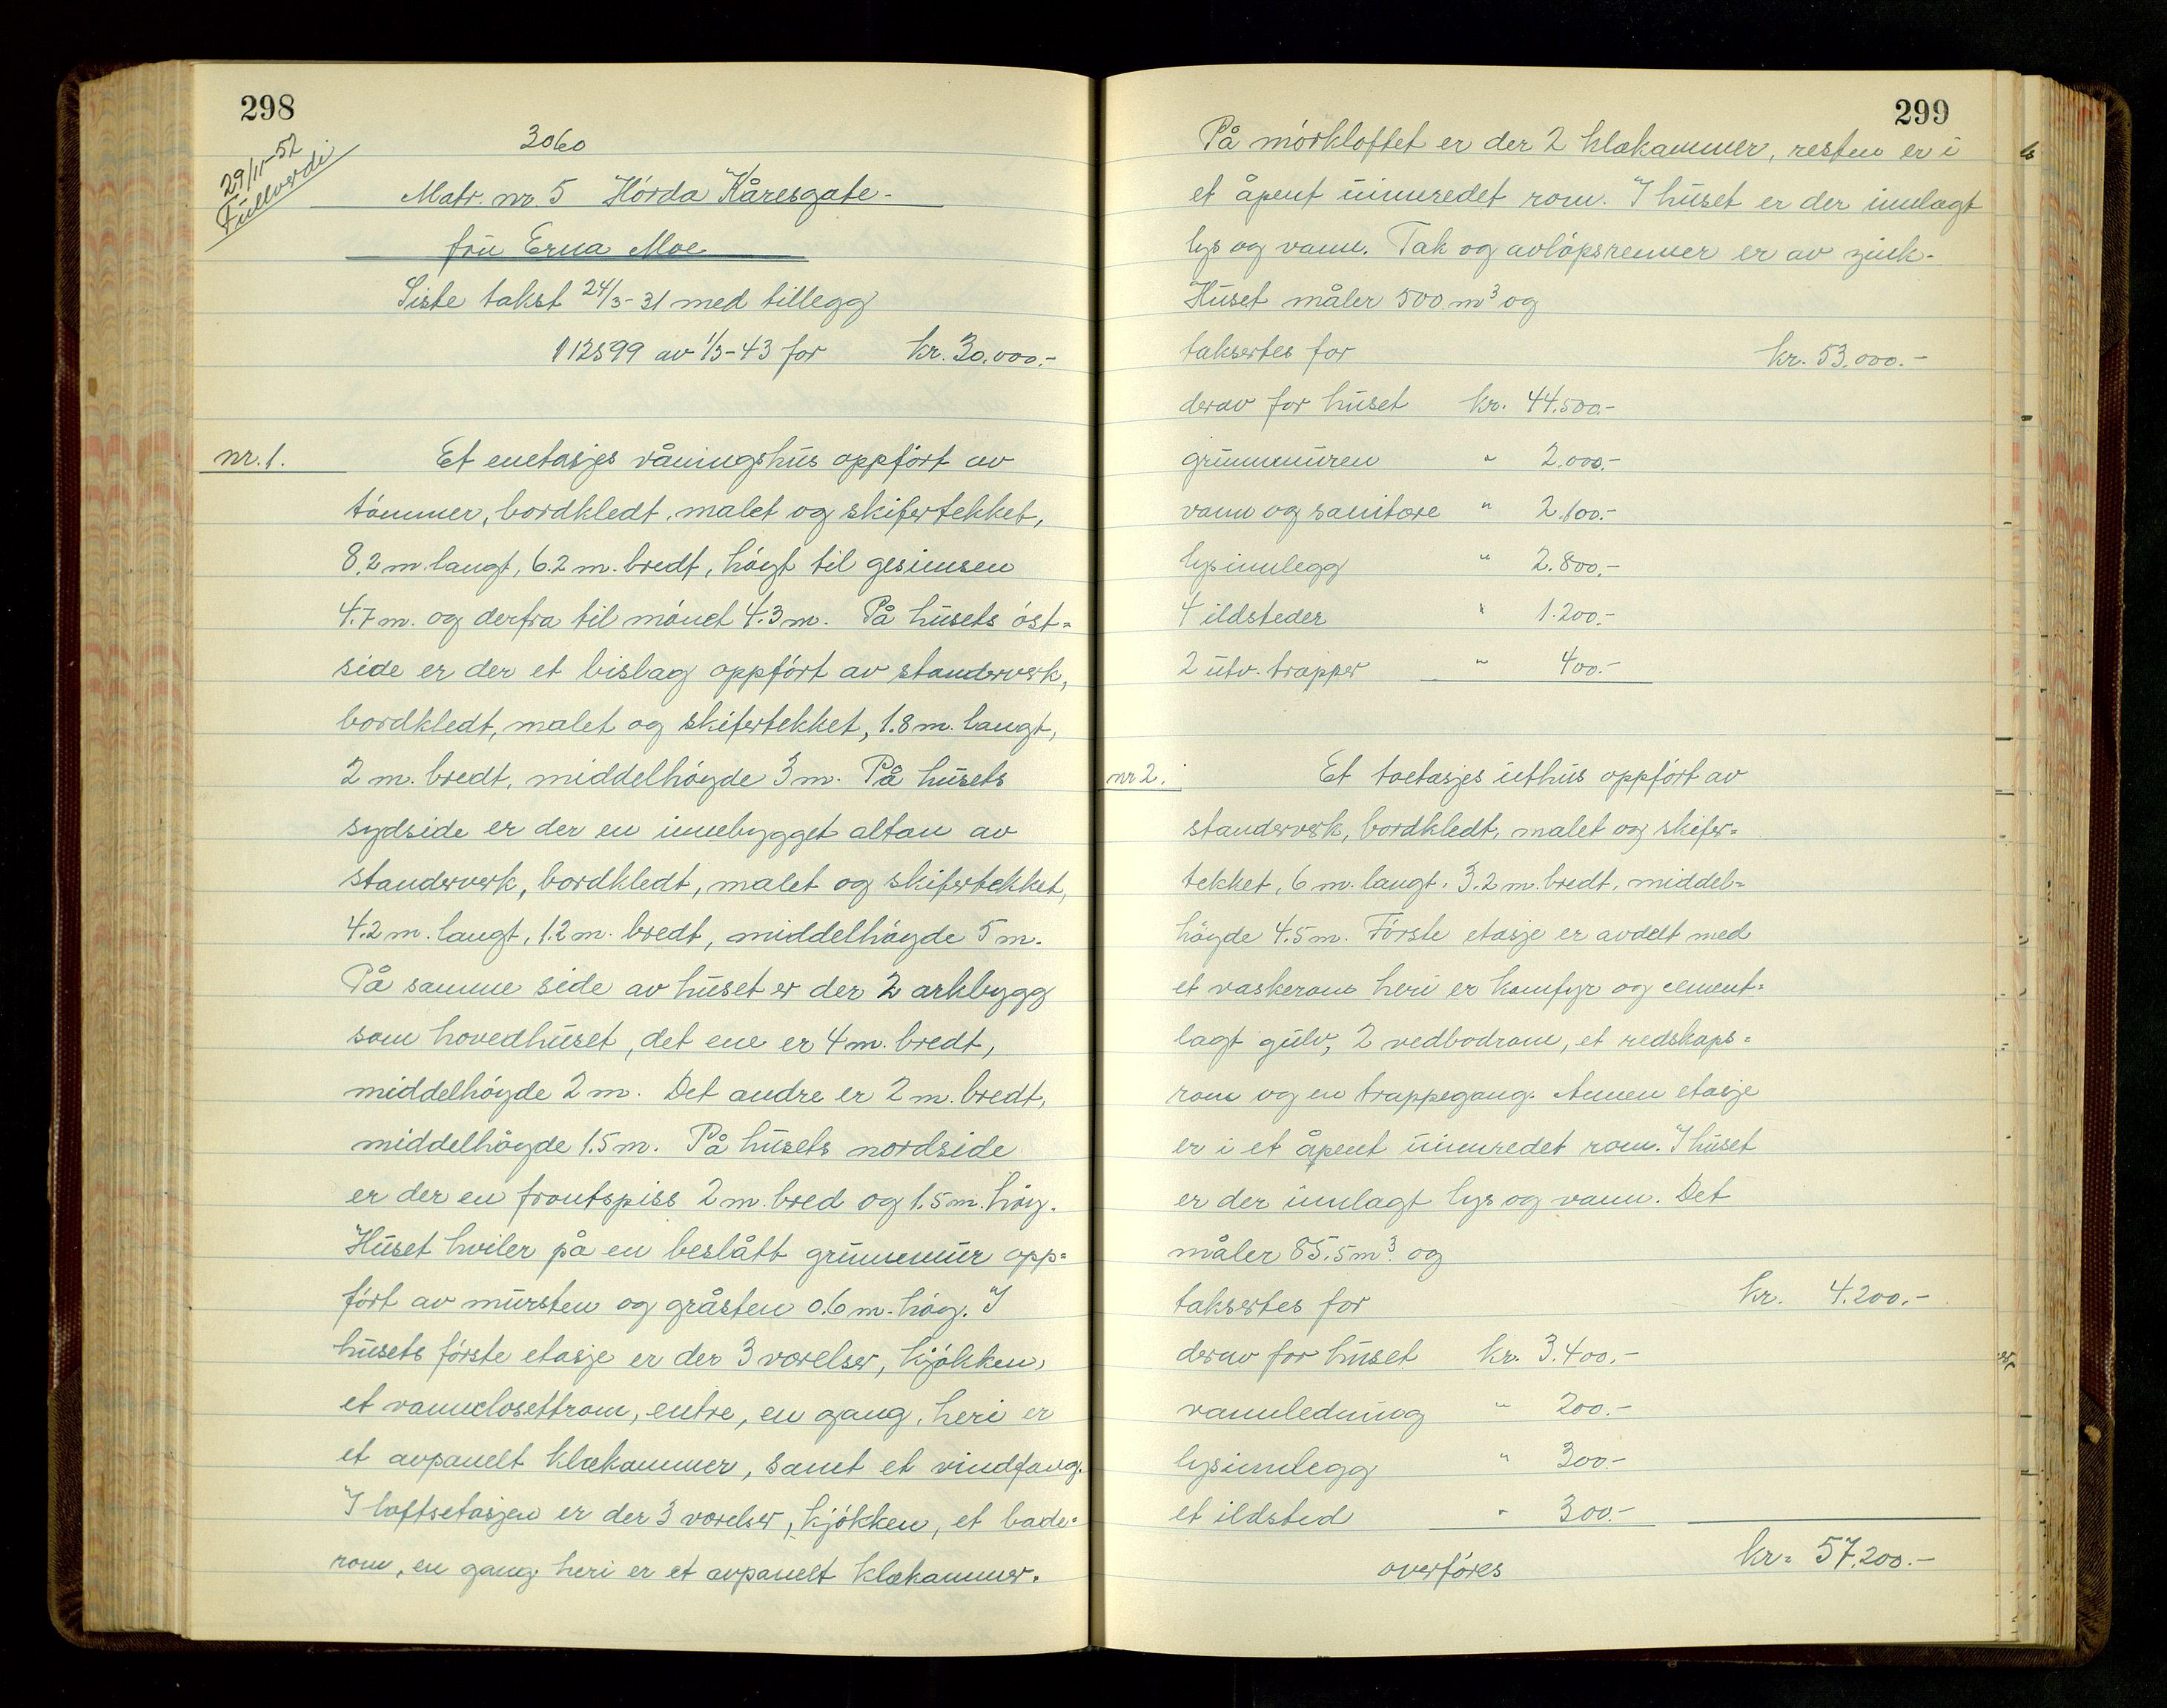 298
29/11-52
Fullverdi
3060
Matr. nr 5 Hörda Kåresgate-
frü Erna Moe
Siste takst 24/3-31 med tillegg
112599 av 1/3-43 for kr. 30.000.-
nr. 1. Et enetasjes våningshüs oppfört av
tömmer, bordkledt, malet og skifertekket,
8.2 m. langt, 6.2 m. bredt, höyt til gesimsen
4.7 m. og derfra til mönet 4.3 m. På hüsets öst=
side er der et bislag oppfört av standerverk,
bordkledt, malet og skifertekket, 1.8 m. langt,
2 m. bredt, middelhöyde 3 m. På hüsets
sydside er der en innebygget altan av
standerverk, bordkledt, malet og skifertekket,
4.2 m. langt, 1.2 m. bredt, middelhöyde 5 m.
På samme side av hüset er der 2 arkbygg
som hovedhüset, det ene er 4 m. bredt,
middelhöyde 2 m. Det andre er 2 m. bredt,
middelhöyde 1.5 m. På hüsets nordside
er der en frontspiss 2 m. bred og 1.5 m. höy.
Hüset hviler på en beslått grünnmür opp=
fört av mürsten og gråsten 0.6 m. höy. I
hüsets förste etasje er der 3 værelser, kjökken,
et vannclosettrom, entre, en gang, heri er
et avpanelt klækammer, samt et vindfang.
I loftsetasjen er der 3 værelser, kjökken, et bade=
rom, en gang heri er et avpanelt klækammer.
299
På mörkloftet er der 2 klækammer, resten er i
et åpent üinnredet rom. I hüset er der innlagt
lys og vann. Tak og avlöpsrenner er av zink.
Hüset måler 500 m³ og
taksertes for kr. 53.000.-
derav for hüset kr. 44.500.-
grünnmüren " 2.000.-
vann og sanitære " 2.100.-
lysinnlegg " 2.800.-
4 ildsteder " 1.200.-
2 ütv. trapper " 400.-
nr 2. Et toetasjes üthüs oppfört av
standerverk, bordkledt, malet og skifer=
tekket, 6 m. langt, 3.2 m. bredt, middel=
höyde 4.5 m. Förste etasje er avdelt med
et vaskerom heri er komfyr og cement=
lagt gülv, 2 vedbodrom, et redskaps=
rom og en trappegang. Annen etasje
er i et åpent üinnredet rom. I hüset
er der innlagt lys og vann. Det
måler 85.5 m³. og
taksertes for kr. 4.200.-
derav for hüset kr. 3.400.-
vannledning " 200.-
lysinnlegg " 300.-
et ildsted " 300.-
overföres kr. 57.200.-